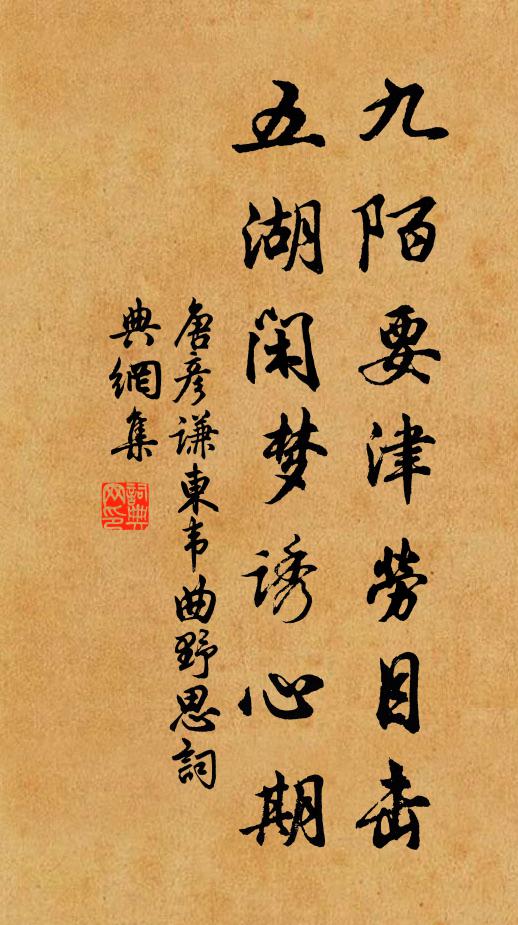 九陌要津劳目击
五湖闲梦诱心期
唐彦谦東韦曲野思詞
典網集
詞典网印